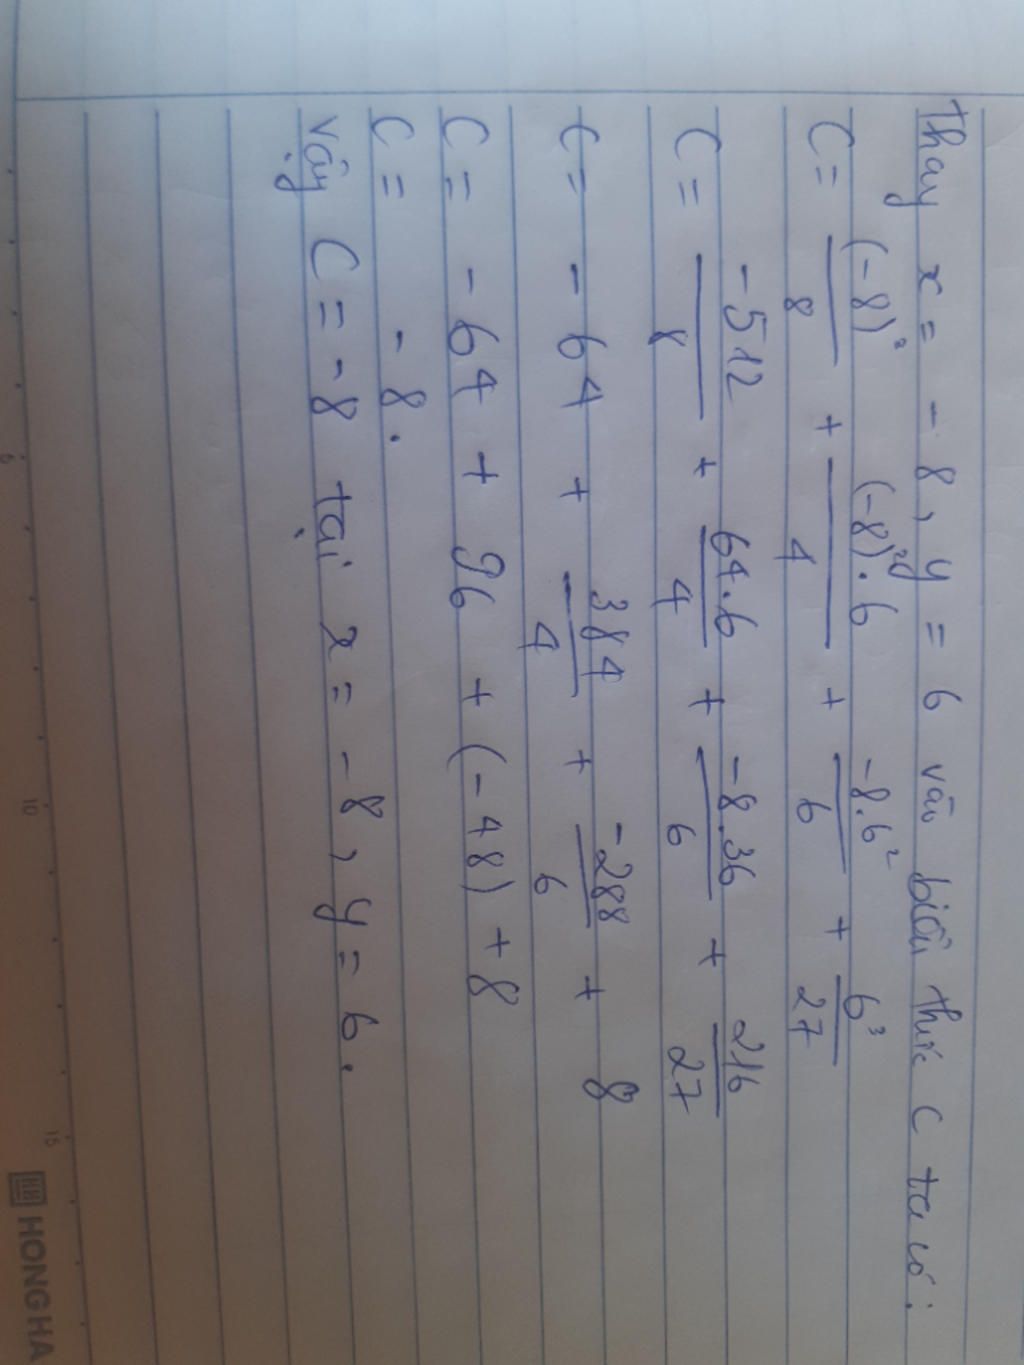 Thay x = -8, y = 6 vào biểu thức C ta có:
C = (-8)³/8 + (-8)²·6/4 + -8.6²/6 + 6³/27
C = -512/8 + 64.6/4 + -8.36/6 + 216/27
C = -64 + 384/4 + -288/6 + 8
C = -64 + 96 + (-48) + 8
C = -8.
Vậy C = -8 tại x = -8, y = 6.
5 10 15
HH HONG HA